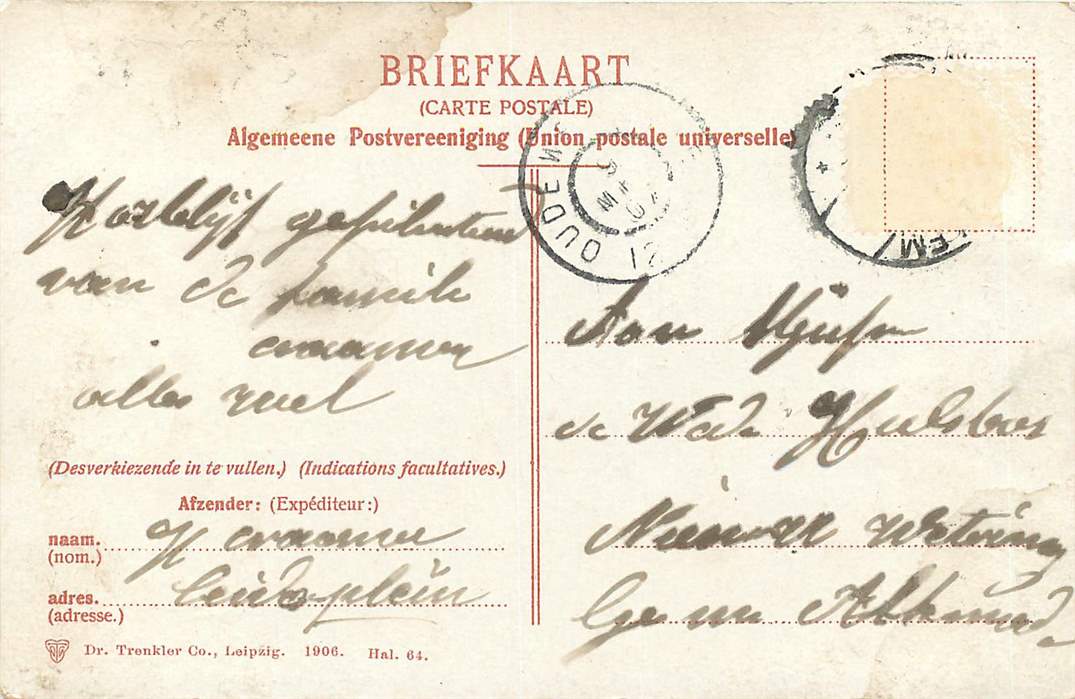 BRIEFKAART
(CARTE POSTALE)
Algemeene Postvereeniging (Union postale universelle)
OUDEW
12
EM
van de familie
craamer
alles wel
Aan Mejufr
de Wed. Hulsbos
Nieuwe Wetering
Gem Alkmade
(Desverkiezende in te vullen.) (Indications facultatives.)
Afzender: (Expéditeur:)
naam. H craamer
(nom.)
adres. Leidseplein
(adresse.)
Dr. Trenkler Co., Leipzig. 1906. Hal. 64.